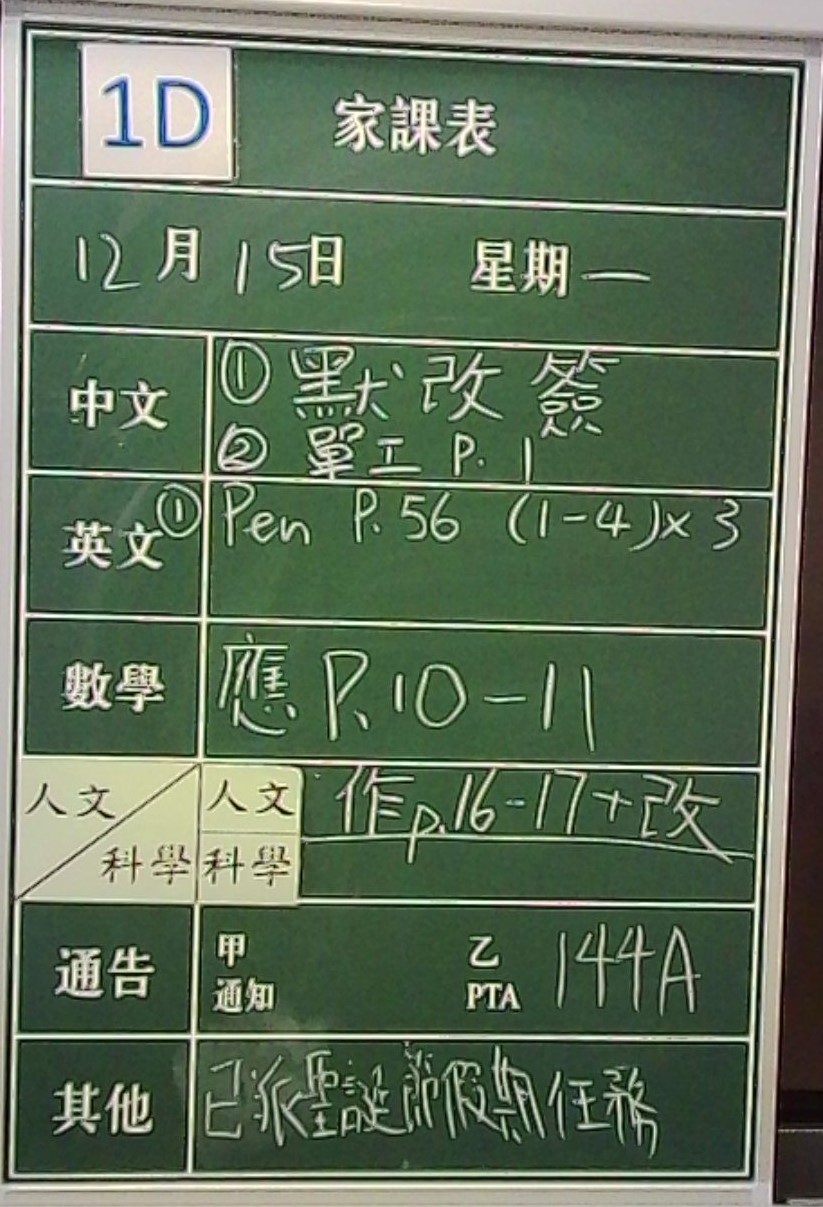 1D 家課表
12月15日 星期一
中文 ① 默改簽
② 單工 P. 1
英文 ① Pen P. 56 (1-4)x3
數學 應 P. 10-11
人文 人文 作p. 16-17+改
科學 科學
通告 甲 乙 144A
通知 PTA
其他 已派聖誕節假期任務